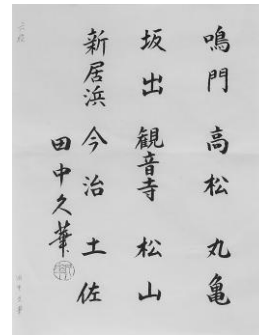 鳴門 高松 丸亀
坂出 観音寺 松山
新居浜 今治 土佐
田中久華